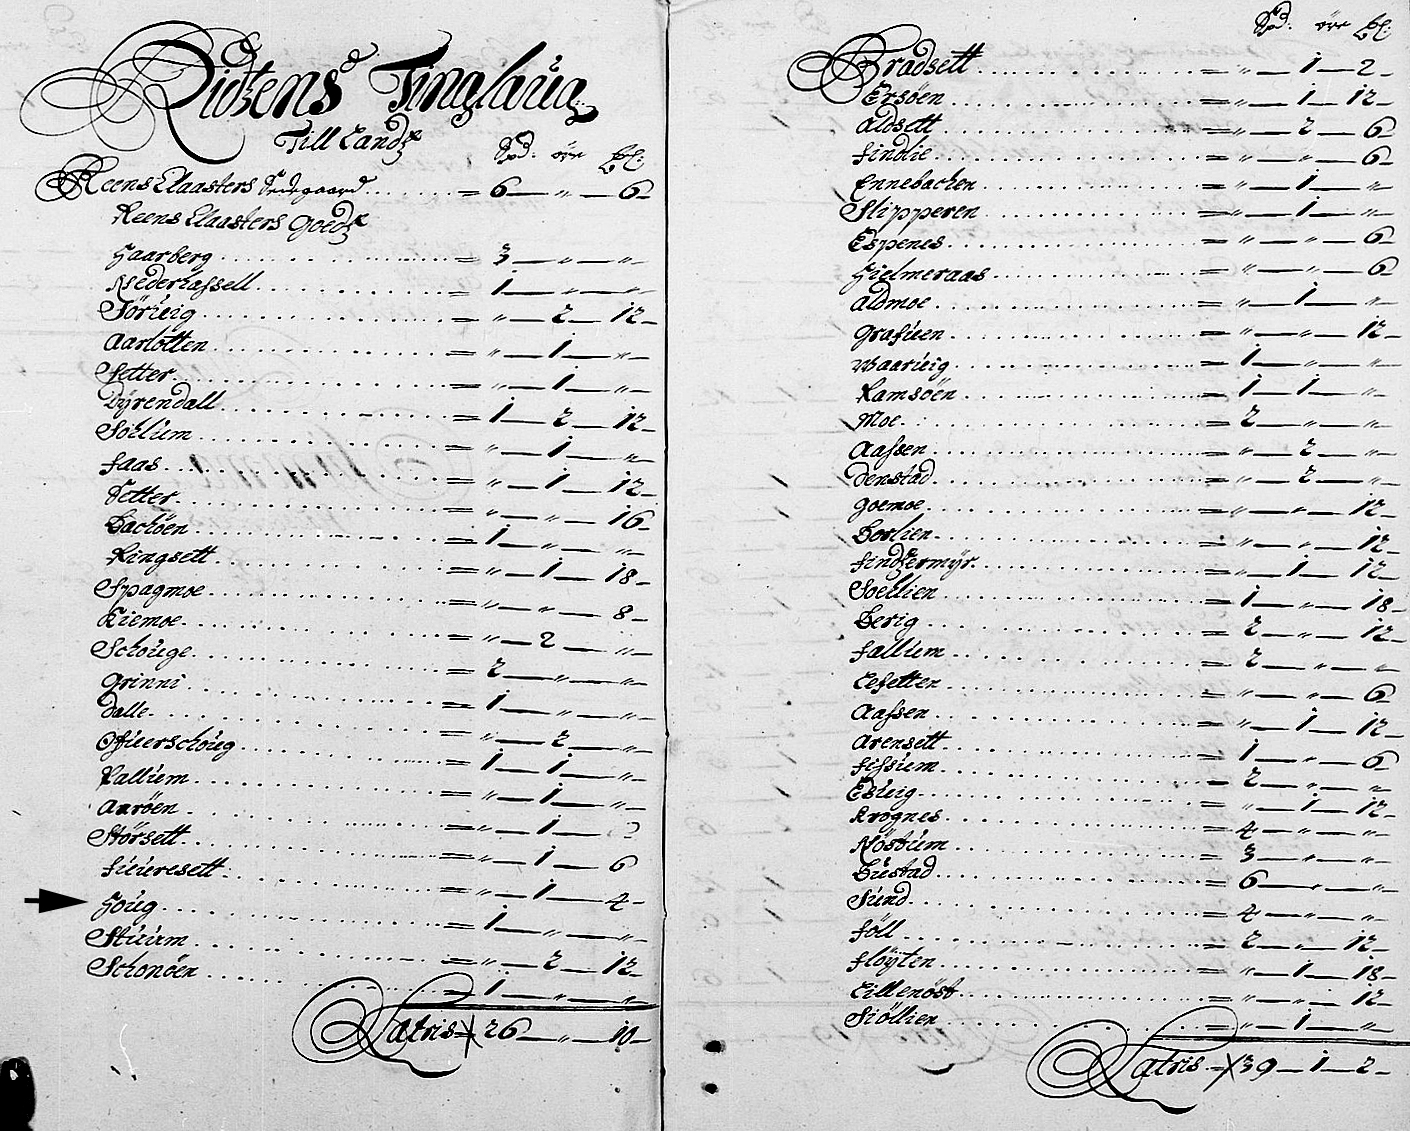 Ridsens Tinglaug
Till Landz
Spd. öre
Reens Claasters = 6 — „ — 6
Reens Claasters Goedz
Haarberg = 3 — „ — „
Nederhassell = 1 — „ — „
Förüeig = „ — 2 — 12
Aarlötten = „ — 1 — „
Setter = „ — 1 — „
Dÿrendall = 1 — 2 — 12
Sohlüm = „ — 1 — „
Faas = „ — 1 — 12
Setter = „ — „ — 16
Bachöen = 1 — „ — „
Ringsett = „ — 1 — 18
Spagmoe = „ — „ — 8
Kiemoe = „ — 2 — „
Schouge = 2 — „ — „
Grinni = 1 — „ — „
Dalle = „ — 2 — „
Ofüerschoüg = 1 — 1 — „
Rallüem = „ — 1 — „
Aaröen = „ — 1
Störsett = „ — 1 — 6
= „ — 1 — 4
Houg = 1 — „ — „
Stüüm = „ — 2 — 12
Schonöen = 1 — „ — „
Latris 26 — „ — 10
Spd. öre
Bradsett = „ — 1 — 2
Ersöen = „ — 1 — 12
Aldsett = „ — 2 — 6
Lindlie = „ — „ — 6
Ennebachen = „ — 1 — „
Slipperen = „ — 1 — „
Espenes = „ — „ — 6
Hielmeraas = „ — „ — 6
Aldmoe = „ — 1 — „
Grafüen = „ — „ — 12
Waarüeig = 1 — „ — „
Ramsöen = 1 — 1 — „
Moe = 2 — „ — „
Aassen = „ — 2 — „
Denstad = „ — 2 — „
Goemoe = „ — „ — 12
Borlien = „ — „ — 12
Lindzermÿr = „ — 1 — 12
Soehlien = 1 — „ — 18
Berig = 2 — „ — 12
Fallüm = 2 — „ — „
Lesetter = „ — „ — 6
Aassen = „ — 1 — 12
Arensett = 1 — „ — 6
Fissüm = 2 — „ — „
Esüeig = „ — 1 — 12
Krognes = 4 — „ — „
Röstüm = 3 — „ — „
Büstad = 6 — „ — „
Sünd = 4 — „ — „
Föll = 2 — „ — 12
Fløÿten = „ — 1 — 18
Lillenöst = „ — „ — 12
Siöllien = „ — 1 — „
Latris 39 — 1 — 2